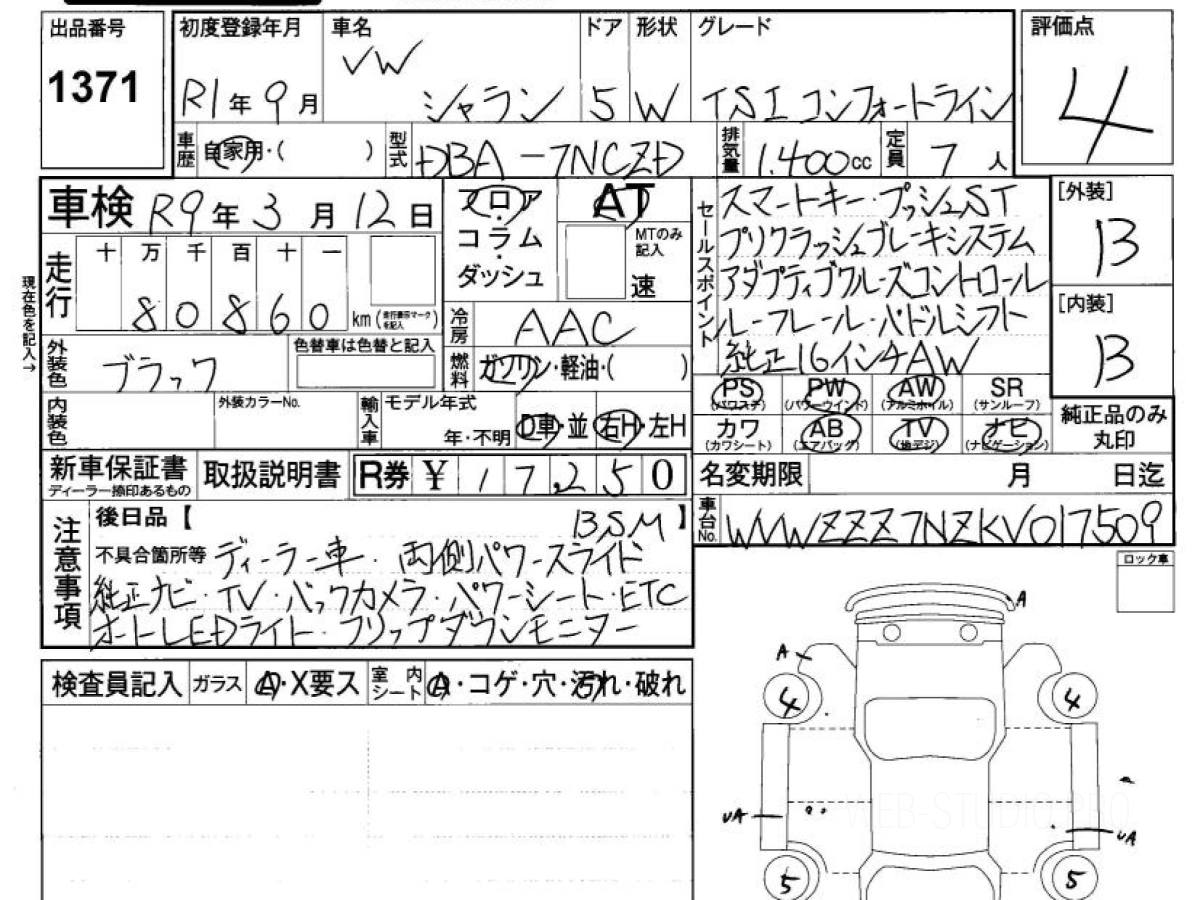 出品番号 初度登録年月 車名 ドア 形状 グレード 評価点
1371 R1年 9月 VW シャラン 5 W TSI コンフォートライン 4
車歴 自家用・( ) 型式 DBA-7NCZD 排気量 1.400cc 定員 7人
車検 R9年 3月 12日
フロア・コラム・ダッシュ
AT
MTのみ記入
速
セールスポイント
スマートキー・プッシュST
プリクラッシュブレーキシステム
アダプティブクルーズコントロール
ルーフレール・パドルシフト
純正16インチAW
[外装]
B
[内装]
B
現在色を記入→
走行 十 万 千 百 十 一
8 0 8 6 0 km (走行表示マークを記入)
冷房 AAC
外装色 ブラック 色替車は色替と記入
燃料 ガソリン・軽油・( )
内装色 外装カラーNo. 輸入車 モデル年式
年・不明 D車・並 右H・左H
PS (パワステ) PW (パワーウインド) AW (アルミホイル) SR (サンルーフ)
カワ (カワシート) AB (エアバッグ) TV (地デジ) ナビ (ナビゲーション)
純正品のみ丸印
新車保証書 ディーラー捺印あるもの 取扱説明書 R券 ¥ 17,250
名変期限 月 日迄
車台No. WVWZZZ7NZKV017509
注意事項
後日品【 BSM】
不具合箇所等 ディーラー車・両側パワースライド
純正ナビ・TV・バックカメラ・パワーシート・ETC
オートLEDライト・フリップダウンモニター
ロック車
検査員記入 ガラス A・X要ス 室内シート A・コゲ・穴・汚れ・破れ
A
A
4 4
UA UA
WEB-STUDIO.PRO
5 5